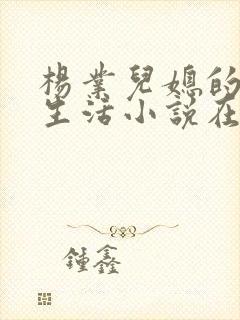 楊業兒媳的
生活小説在
鍾鑫